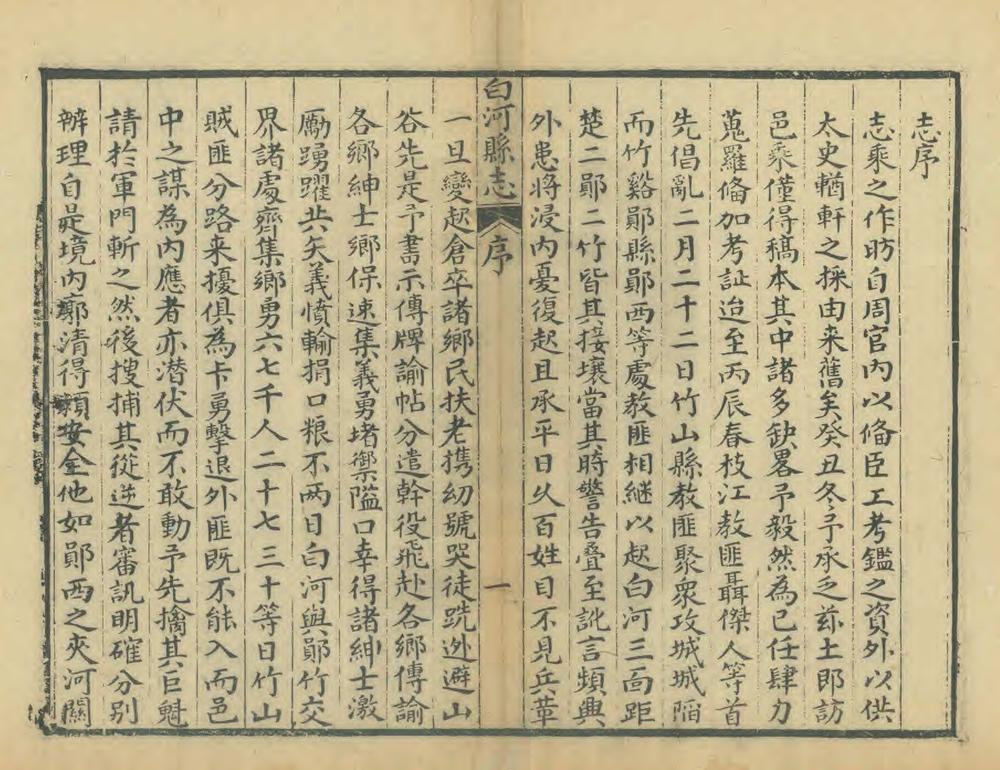 志序
志乘之作昉自周官内以備臣工考鑑之資外以供
太史輶軒之採由来舊矣癸丑冬予承乏茲土即訪
邑乘僅得稿本其中諸多缺畧予毅然為己任肆力
蒐羅備加考証迨至丙辰春枝江教匪聶傑人等首
先倡亂二月二十二日竹山縣教匪聚衆攻城城陷
而竹谿鄖縣鄖西等處教匪相継以起白河三面距
楚二鄖二竹皆其接壤當其時警告叠至訛言頻興
外患将浸内憂復起且承平日久百姓目不見兵革
白河縣志 序 一
一旦變起倉卒諸鄉民扶老携幼號哭徒跣迯避山
谷先是予書示傳牌諭帖分遣幹役飛赴各鄉傳諭
各鄉紳士鄉保速集義勇堵禦隘口幸得諸紳士激
勵踴躍共矢義憤輸捐口粮不两日白河與鄖竹交
界諸處齊集鄉勇六七千人二十七三十等日竹山
賊匪分路来擾俱為卡勇擊退外匪既不能入而邑
中之謀為内應者亦潜伏而不敢動予先擒其巨魁
請於軍門斬之然後搜捕其從逆者審訊明確分别
辨理自是境内廓清得頼安全他如鄖西之夾河關